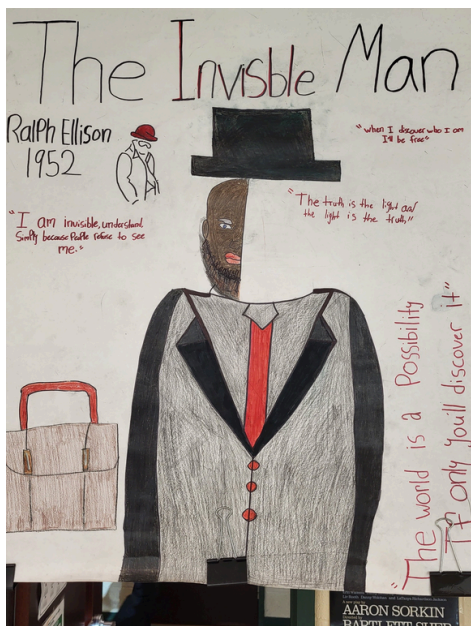 The Invisble Man
Ralph Ellison
1952
"when I discover who I am
I'll be free"
"The truth is the light and
the light is the truth,"
"I am invisible, understand
Simply because People refuse to see
me."
"The world is a Possibility
If only you'll discover It"
AARON SORKIN
BARTLETT SHER